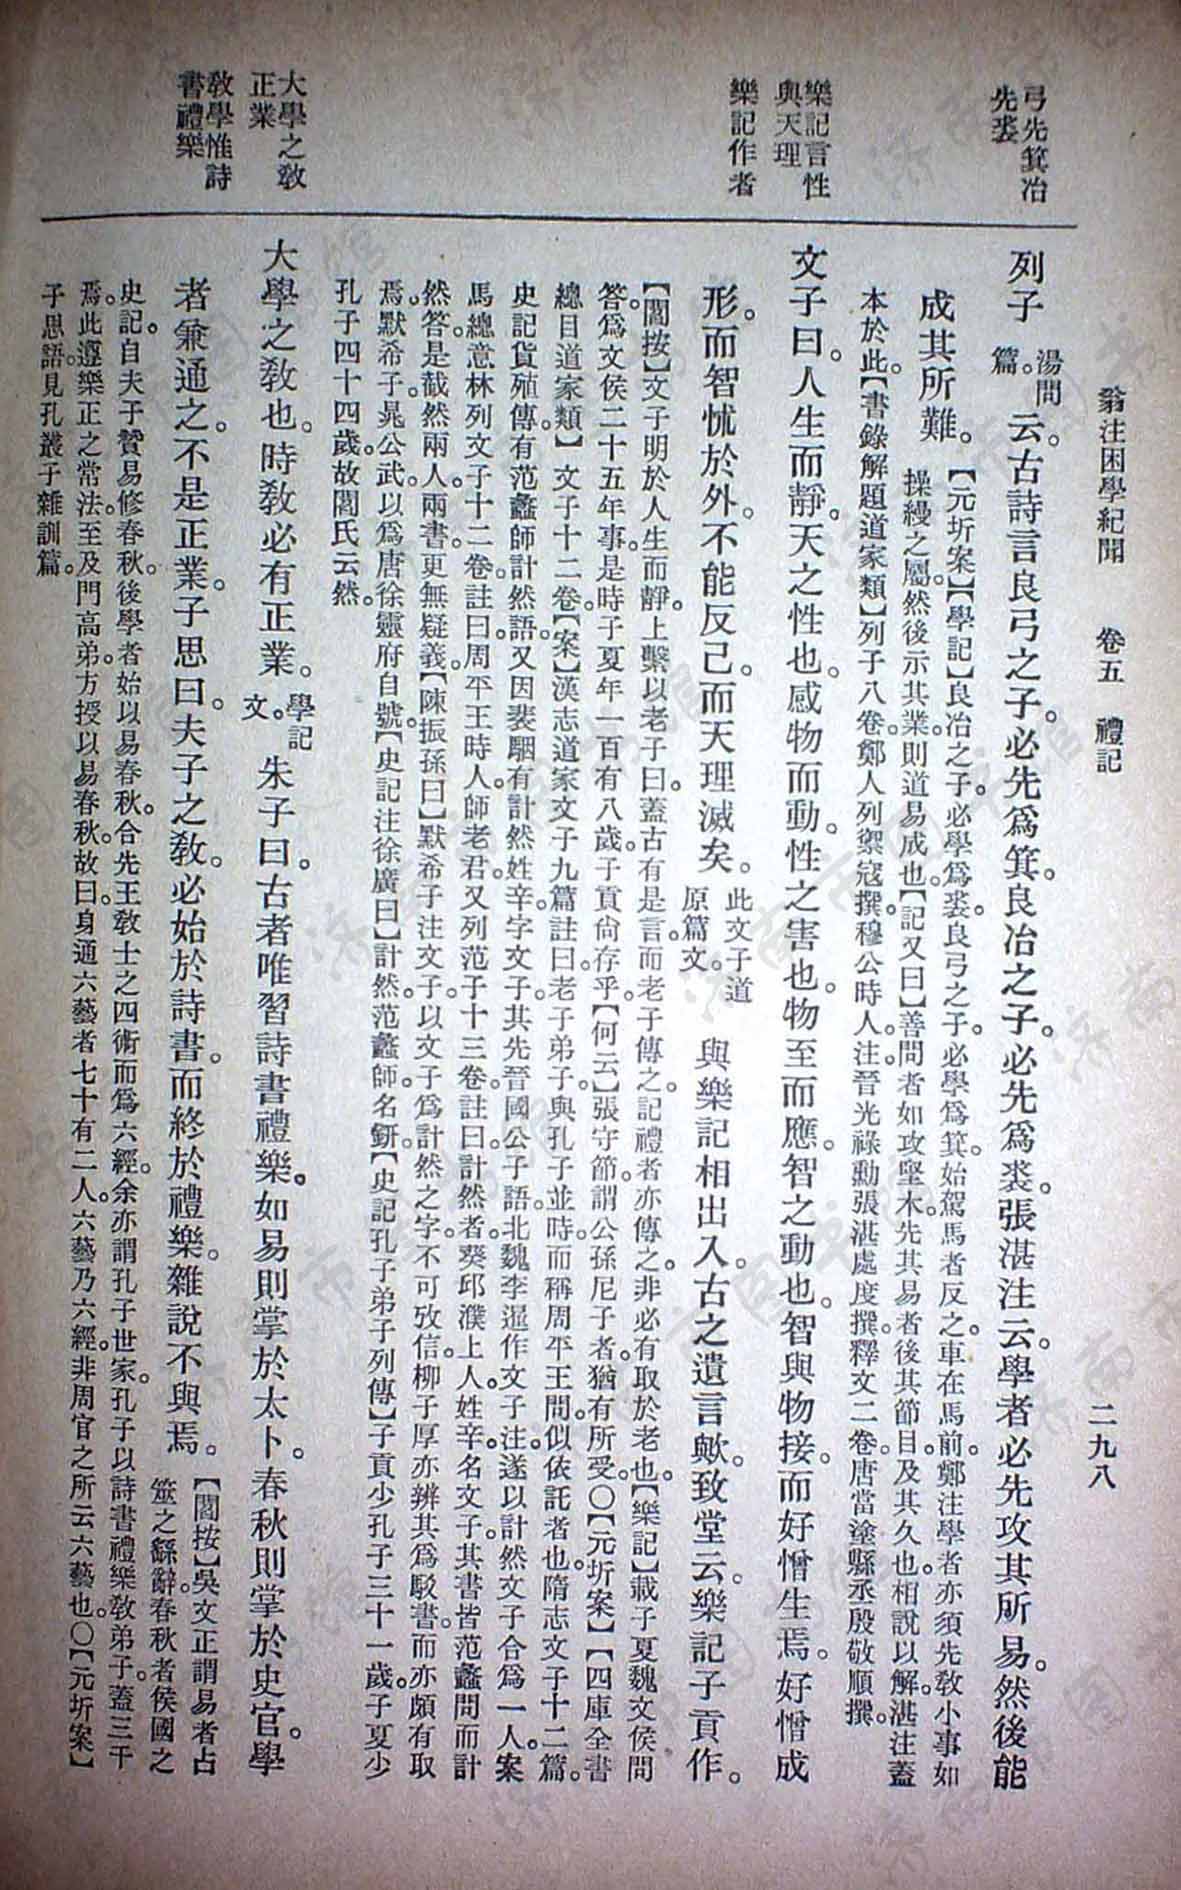 翁注困學紀聞　卷五　禮記　二九八
弓先箕冶
先裘
樂記言性
與天理
樂記作者
大學之敎
正業
敎學惟詩
書禮樂
列子湯問篇。云。古詩言良弓之子。必先爲箕。良冶之子。必先爲裘。張湛注云。學者必先攻其所易。然後能
成其所難。【元圻案】【學記】良冶之子。必學爲裘。良弓之子。必學爲箕。始駕馬者反之。車在馬前。鄭注學者亦須先敎小事如
操縵之屬。然後示其業。則道易成也。【記又曰】善問者如攻堅木。先其易者。後其節目。及其久也。相說以解。湛注蓋
本於此。【書錄解題道家類】列子八卷。鄭人列禦寇撰。穆公時人。注。晉光祿勳張湛處度撰。釋文二卷。唐當塗縣丞殷敬順撰。
文子曰。人生而靜。天之性也。感物而動。性之害也。物至而應。智之動也。智與物接。而好憎生焉。好憎成
形。而智怵於外。不能反己。而天理滅矣。此文子道原篇文。與樂記相出入。古之遺言歟。致堂云。樂記子貢作。
【閻按】文子明於人生而靜。上繫以老子曰。蓋古有是言。而老子傳之。記禮者亦傳之。非必有取於老也。【樂記】載子夏魏文侯問
答。爲文侯二十五年事。是時子夏年一百有八歲。子貢尙存乎。【何云】張守節。謂公孫尼子者。猶有所受。〇【元圻案】【四庫全書
總目道家類】文子十二卷。【案】漢志道家文子九篇。註曰。老子弟子。與孔子並時。而稱周平王問。似依託者也。隋志文子十二篇。
史記貨殖傳。有范蠡師計然。語。又因裴駰有計然姓辛。字文子。其先晉國公子語。北魏李暹作文子注。遂以計然文子合爲一人。案
馬總意林列文子十二卷。註曰。周平王時人。師老君。又列范子十三卷。註曰。計然者。葵邱濮上人。姓辛。名文子。其書皆范蠡問而計
然答。是截然兩人。兩書。更無疑義。【陳振孫曰】默希子注文子。以文子爲計然之字。不可攷信。柳子厚亦辨其爲駁書。而亦頗有取
焉。默希子。晁公武。以爲唐徐靈府自號。【史記注徐廣曰】計然。范蠡師。名鈃。【史記孔子弟子列傳】子貢少孔子三十一歲。子夏少
孔子四十四歲。故閻氏云然。
大學之敎也。時敎必有正業。學記文。朱子曰。古者唯習詩書禮樂。如易則掌於太卜。春秋則掌於史官。學
者兼通之。不是正業。子思曰。夫子之敎。必始於詩書。而終於禮樂。雜說不與焉。【閻按】吳文正謂易者占
筮之繇辭。春秋者侯國之
史記。自夫子贊易修春秋。後學者始以易春秋。合先王敎士之四術而爲六經。余亦謂孔子世家。孔子以詩書禮樂敎弟子。蓋三千
焉。此遵樂正之常法。至及門高弟。方授以易春秋。故曰。身通六藝者七十有二人。六藝乃六經。非周官之所云六藝也。〇【元圻案】
子思語。見孔叢子雜訓篇。